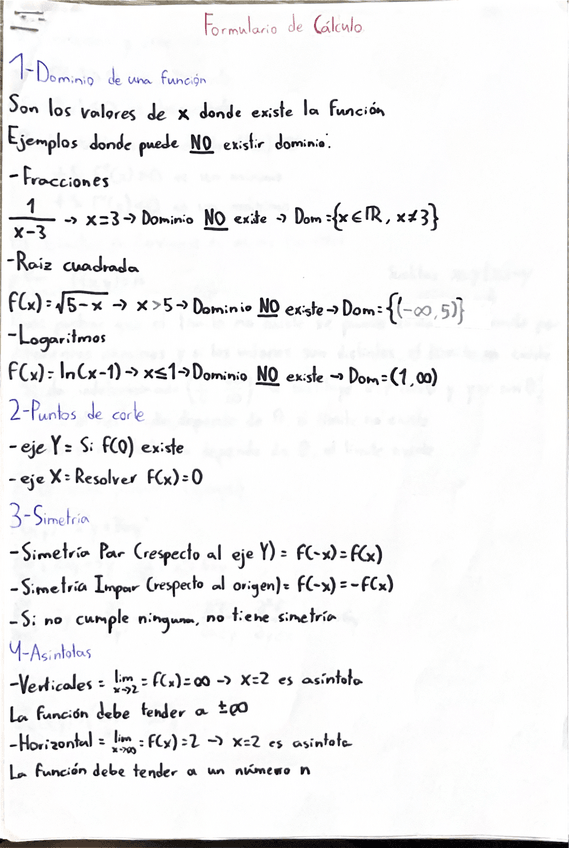 Formulario de Cálculo
1-Dominio de una función
Son los valores de x donde existe la función
Ejemplos donde puede NO existir dominio:
-Fracciones
1/(x-3) → x=3 → Dominio NO existe → Dom={x∈ℝ, x≠3}
-Raíz cuadrada
f(x)=√(5-x) → x>5 → Dominio NO existe → Dom={(-∞,5)}
-Logaritmos
f(x)=ln(x-1) → x≤1 → Dominio NO existe → Dom=(1,∞)
2-Puntos de corte
-eje Y = Si f(0) existe
-eje X = Resolver f(x)=0
3-Simetría
-Simetría Par (respecto al eje Y) = f(-x)=f(x)
-Simetría Impar (respecto al origen) = f(-x)=-f(x)
-Si no cumple ninguna, no tiene simetría
4-Asíntotas
-Verticales = lim x→2 = f(x)=∞ → x=2 es asíntota
La función debe tender a ±∞
-Horizontal = lim x→∞ = f(x)=2 → x=2 es asíntota
La función debe tender a un número n